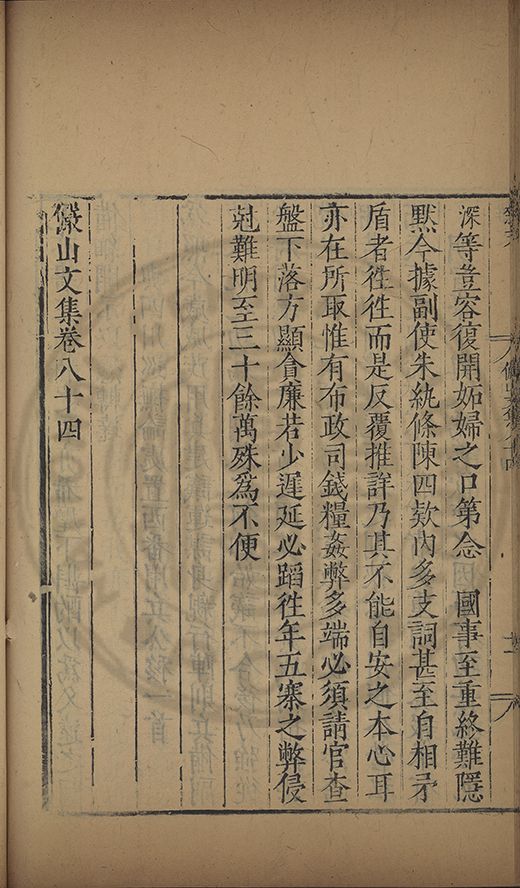 深等豈容復開妬婦之口第念　國事至重終難隱
黙今據副使朱紈條陳四欵内多支詞甚至自相矛
盾者徃徃而是反覆推詳乃其不能自安之本心耳
亦在所取惟有布政司錢糧姦弊多端必須請官查
盤下落方顯貪廉若少遲延必蹈徃年五寨之弊侵
尅難明至三十餘萬殊爲不便
儼山文集卷八十四